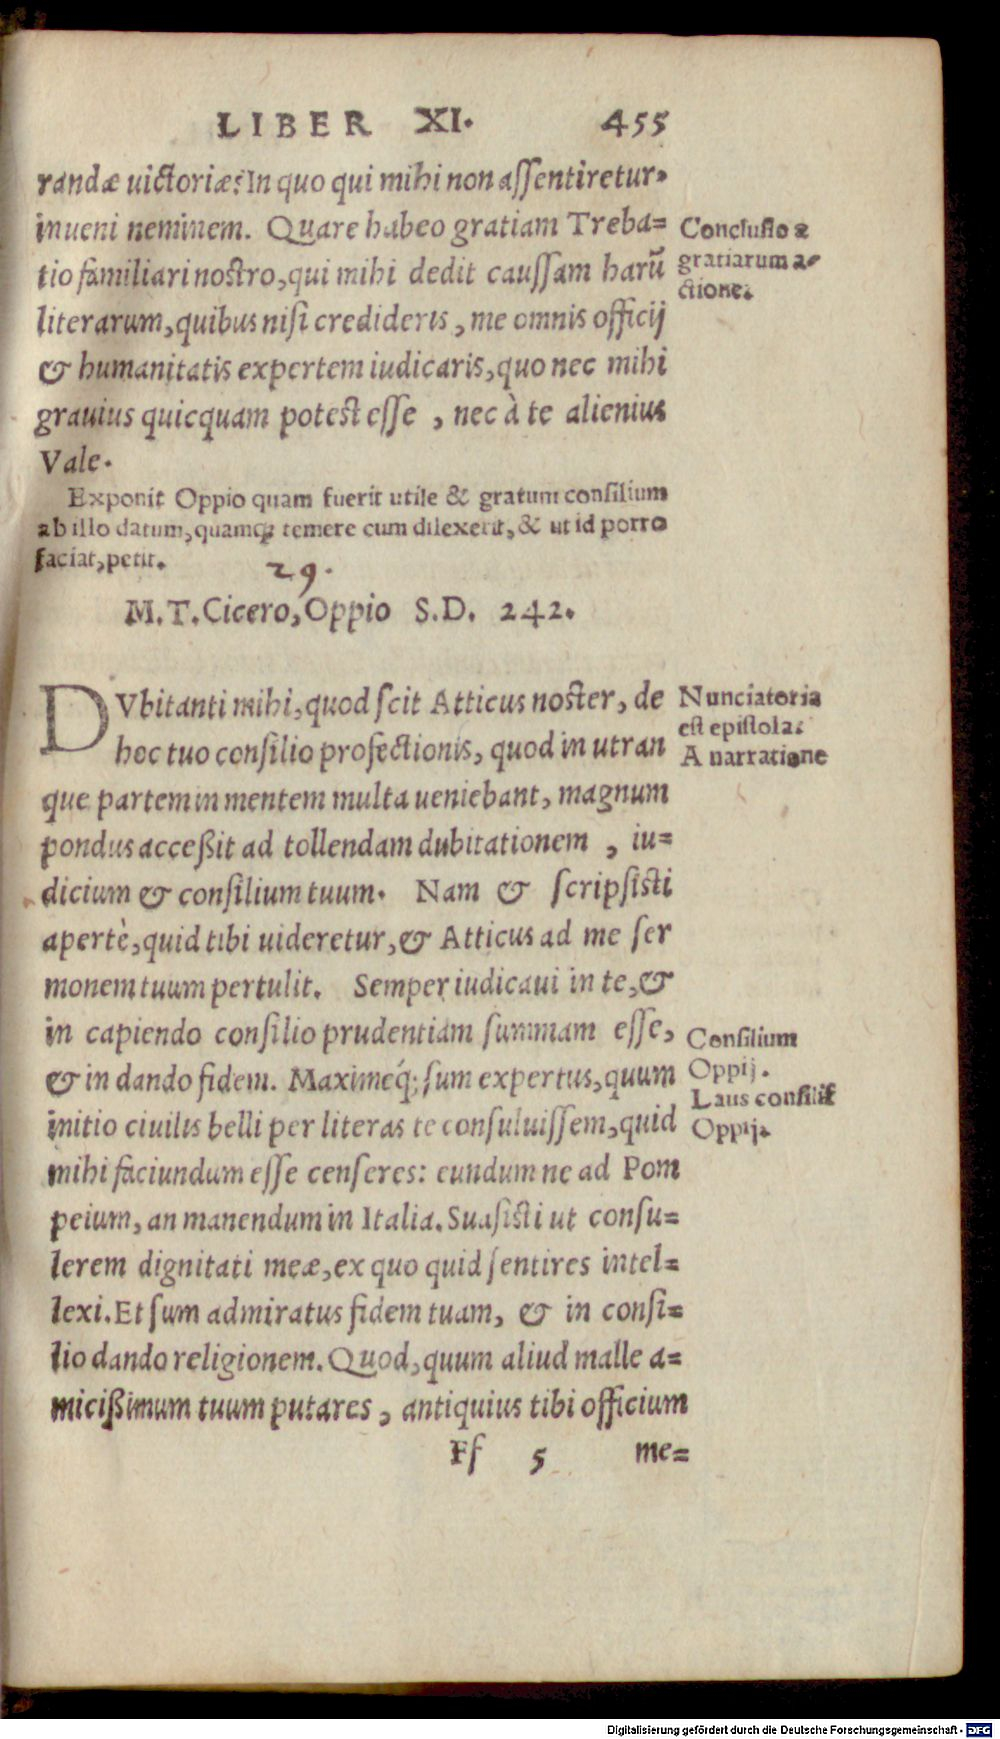 LIBER XI. 455
randæ uictoriæ? In quo qui mihi non assentiretur,
inueni neminem. Quare habeo gratiam Treba=
tio familiari nostro, qui mihi dedit caussam harũ
literarum, quibus nisi credideris, me omnis officij
& humanitatis expertem iudicaris, quo nec mihi
grauius quicquam potest esse, nec à te alienius
Vale.
Conclusio a
gratiarum a-
ctione.
Exponit Oppio quam fuerit utile & gratum consilium
ab illo datum, quamq; temere eum dilexerit, & ut id porro
faciat, petit.
29.
M.T. Cicero, Oppio S.D. 242.
DVbitanti mihi, quod scit Atticus noster, de
hoc tuo consilio profectionis, quod in utran
que partem in mentem multa ueniebant, magnum
pondus acceßit ad tollendam dubitationem, iu=
dicium & consilium tuum. Nam & scripsisti
apertè, quid tibi uideretur, & Atticus ad me ser
monem tuum pertulit. Semper iudicaui in te, &
in capiendo consilio prudentiam summam esse,
& in dando fidem. Maximeq́; sum expertus, quum
initio ciuilis belli per literas te consuluissem, quid
mihi faciundum esse censeres: eundum ne ad Pom
peium, an manendum in Italia. Suasisti ut consu=
lerem dignitati meæ, ex quo quid sentires intel=
lexi. Et sum admiratus fidem tuam, & in consi=
lio dando religionem. Quod, quum aliud malle a=
micißimum tuum putares, antiquius tibi officium
Nunciatoria
est epistola.
A narratione
Consilium
Oppij.
Laus consilij
Oppij.
Ff 5 me=
Digitalisierung gefördert durch die Deutsche Forschungsgemeinschaft - DFG